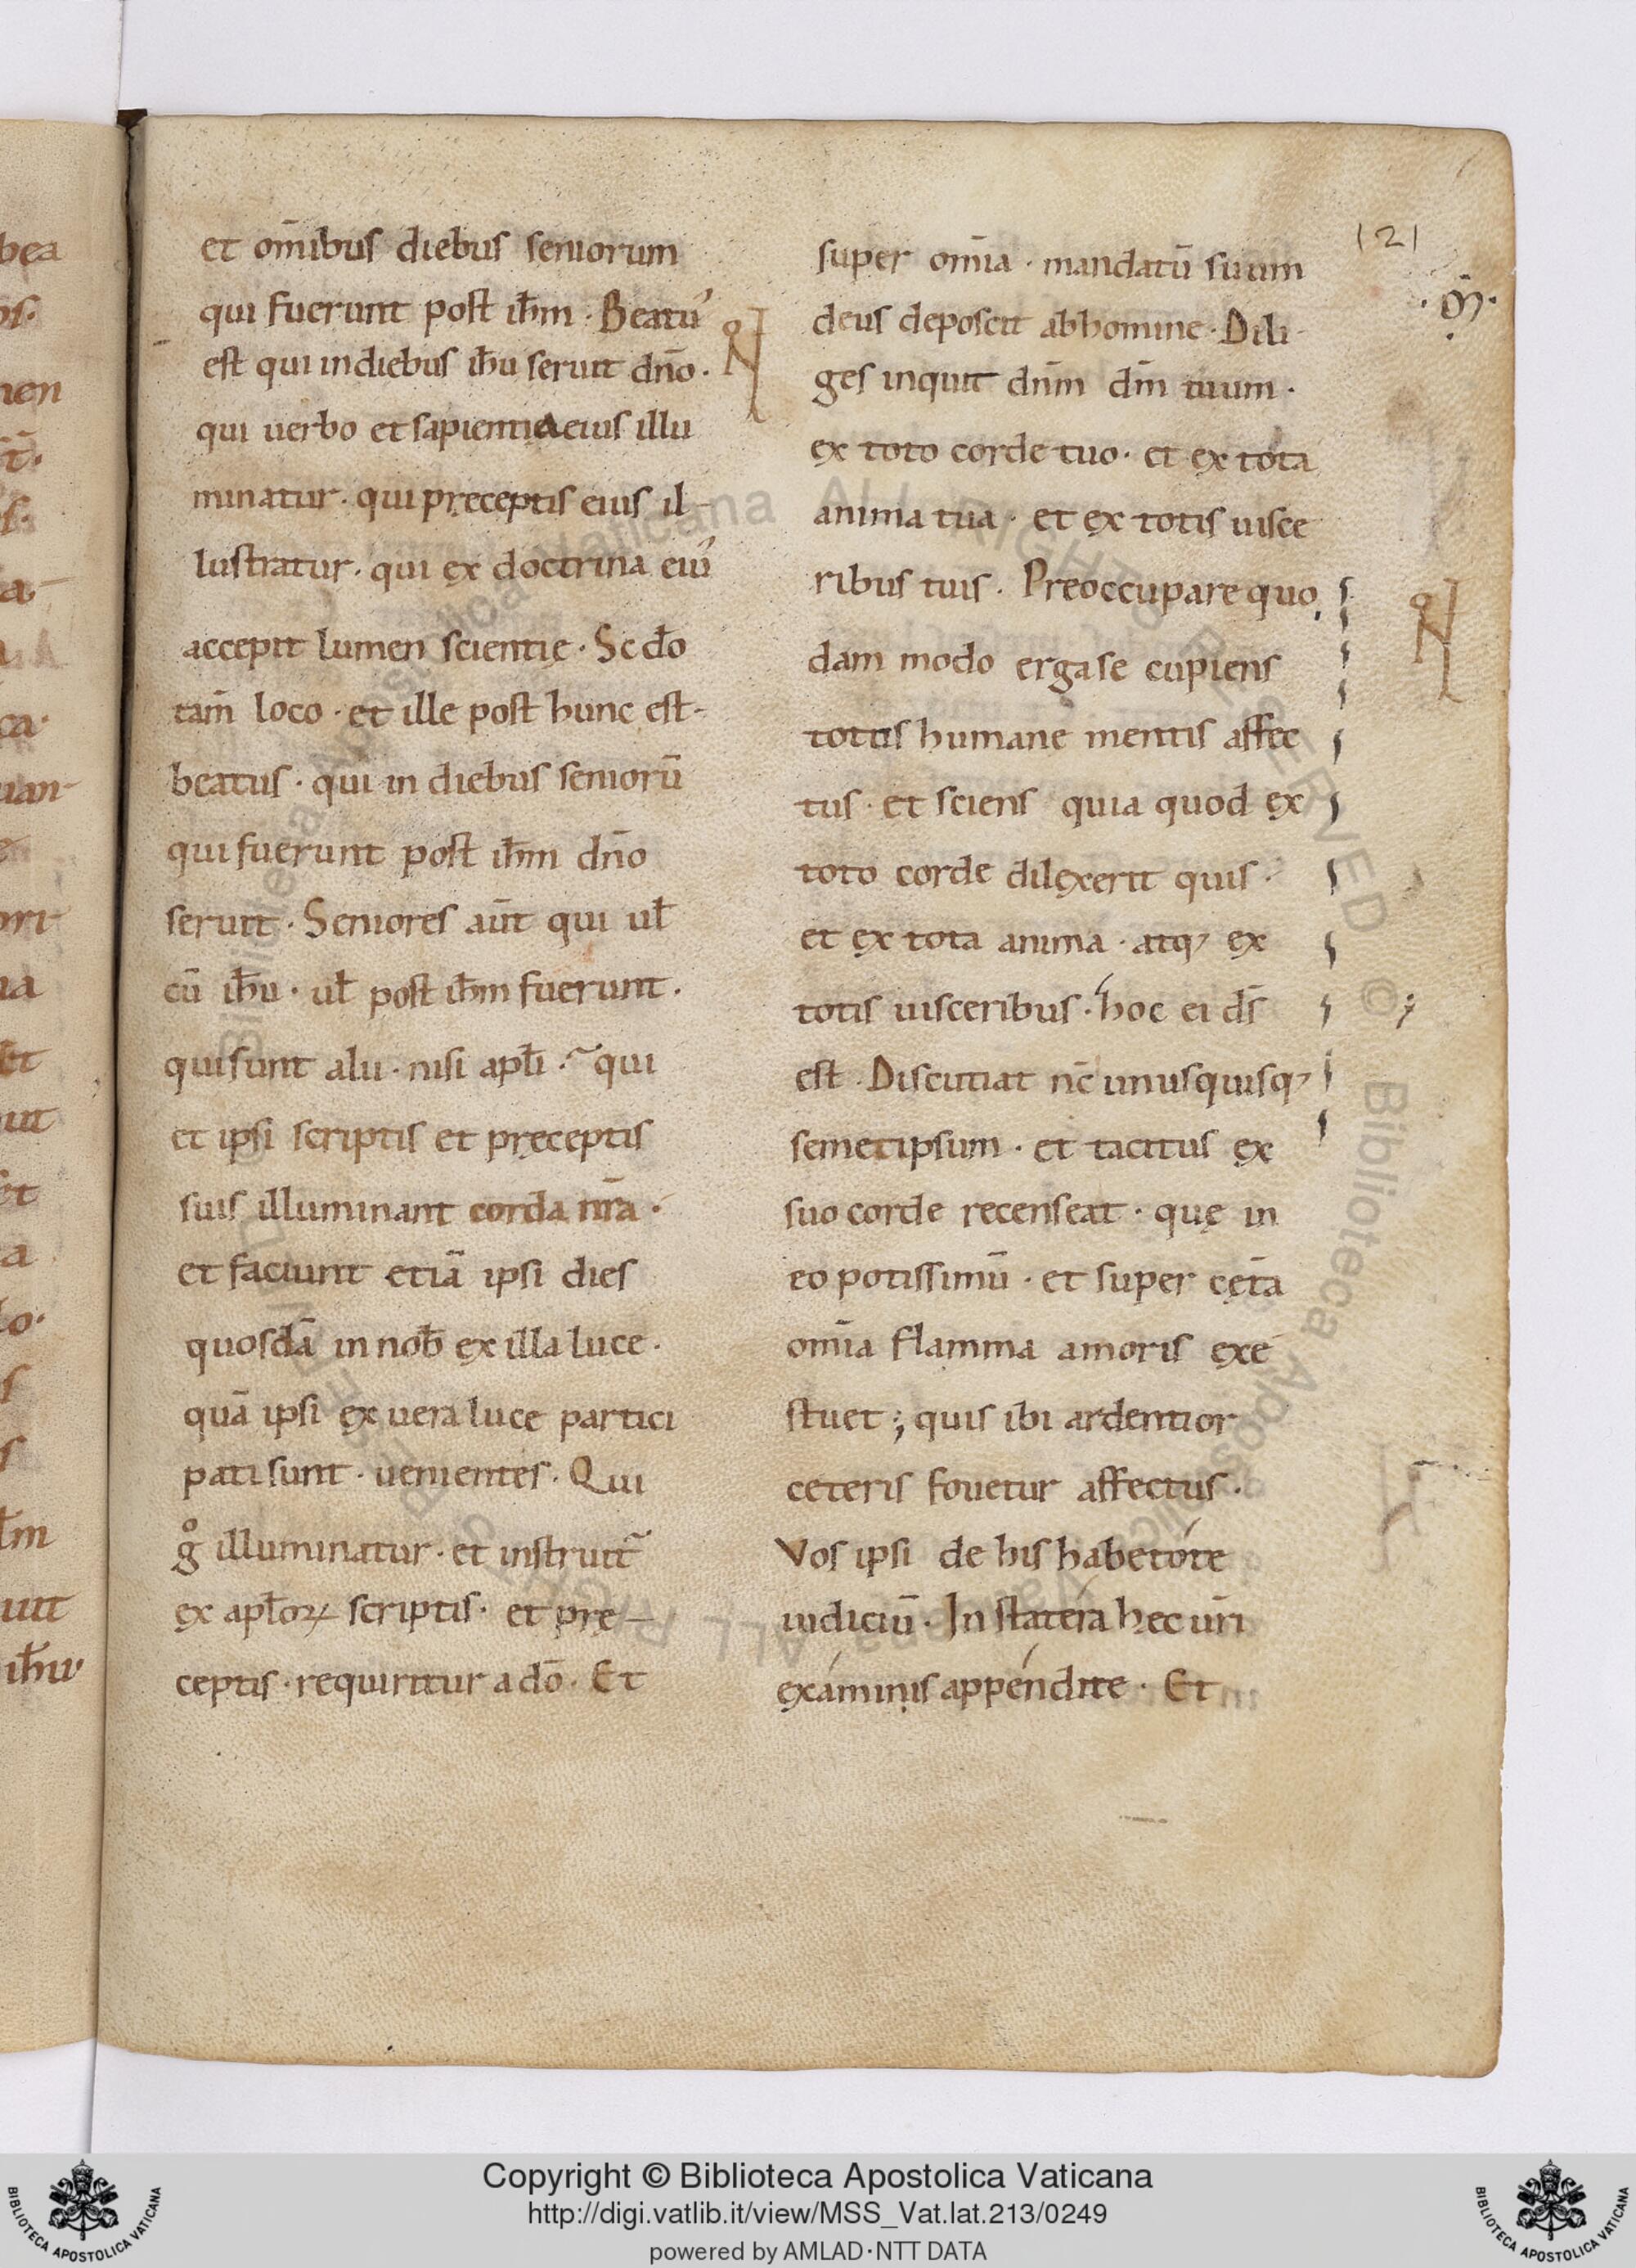 et om̄ibus diebus seniorum
qui fuerunt post ih̄m · Beatu᾽
est qui indiebus ih̄u seruit dn̄o ·
qui uerbo et sapientia eius illu
minatur · qui pręceptis eius il-
lustratur · qui ex doctrina eiu᾽
accepit lumen scientię · Scd̄o
tam̄ loco · et ille post hunc est ·
beatus · qui in diebus seniorū
qui fuerunt post ih̄m dn̄o
seruit · Seniores aūt qui ul̄
cū ih̄u · ul̄ post ih̄m fuerunt ·
qui sunt alii · nisi apl̄i · qui
et ipsi scriptis et pręceptis
suis illuminant corda nr̄a ·
et faciunt etiā ipsi dies
quosdā in nob̄ ex illa luce ·
quā ipsi ex uera luce partici
pati sunt · uenientes · Qui
g̊ illuminatur · et instruit᷑
ex apl̄oꝝ scriptis · et pre-
ceptis · requiritur a dō · Et
super om̄ia · mandatū suum
deus deposcit abhomine · Dili-
ges inquit dn̄m dm̄ tuum ·
ex toto corde tuo · et ex tota
anima tua · et ex totis uisce
ribus tuis · Preoccupare quo
dam modo erga se cupiens
totus humanę mentis affec
tus · et sciens quia quod ex
toto corde dilexerit quis ·
et ex tota anima · atq; ex
totis uisceribus · hoc ei ds̄
est · Discutiat nc̄ unusquisq;
semetipsum · et tacitus ex
suo corde recenseat · quę in
eo potissimū · et super cęt̄a
om̄ia flamma amoris exę
stuet ; quis ibi ardentior
ceteris fouetur affectus ·
Vos ipsi de his habetote
iudiciū · In statera hec ur̄i
examinis appendite · Et
121
Copyright © Biblioteca Apostolica Vaticana
http://digi.vatlib.it/view/MSS_Vat.lat.213/0249
powered by AMLAD·NTT DATA
BIBLIOTECA APOSTOLICA VATICANA
BIBLIOTECA APOSTOLICA VATICANA